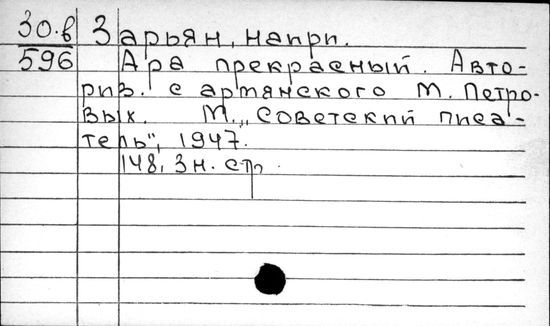 30.в Зарьян, напри.
596 Ара прекрасный. Авто-
риз. с армянского М. Петро-
вых. М., „Советский писа-
тель", 1947.
148, 3 н. стр.